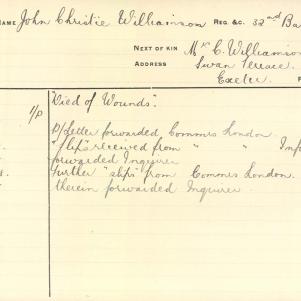 NAME John Christie Williamson REG &C. 32nd Ba
NEXT OF KIN Mr C. Williamson
ADDRESS Swan Terrace
Exeter
1/D "Died of Wounds".
D/Letter forwarded Commrs London.
"slips" received from " " Inf
forwarded Inquirer
further "slips" from Commrs London.
therein forwarded Inquirer